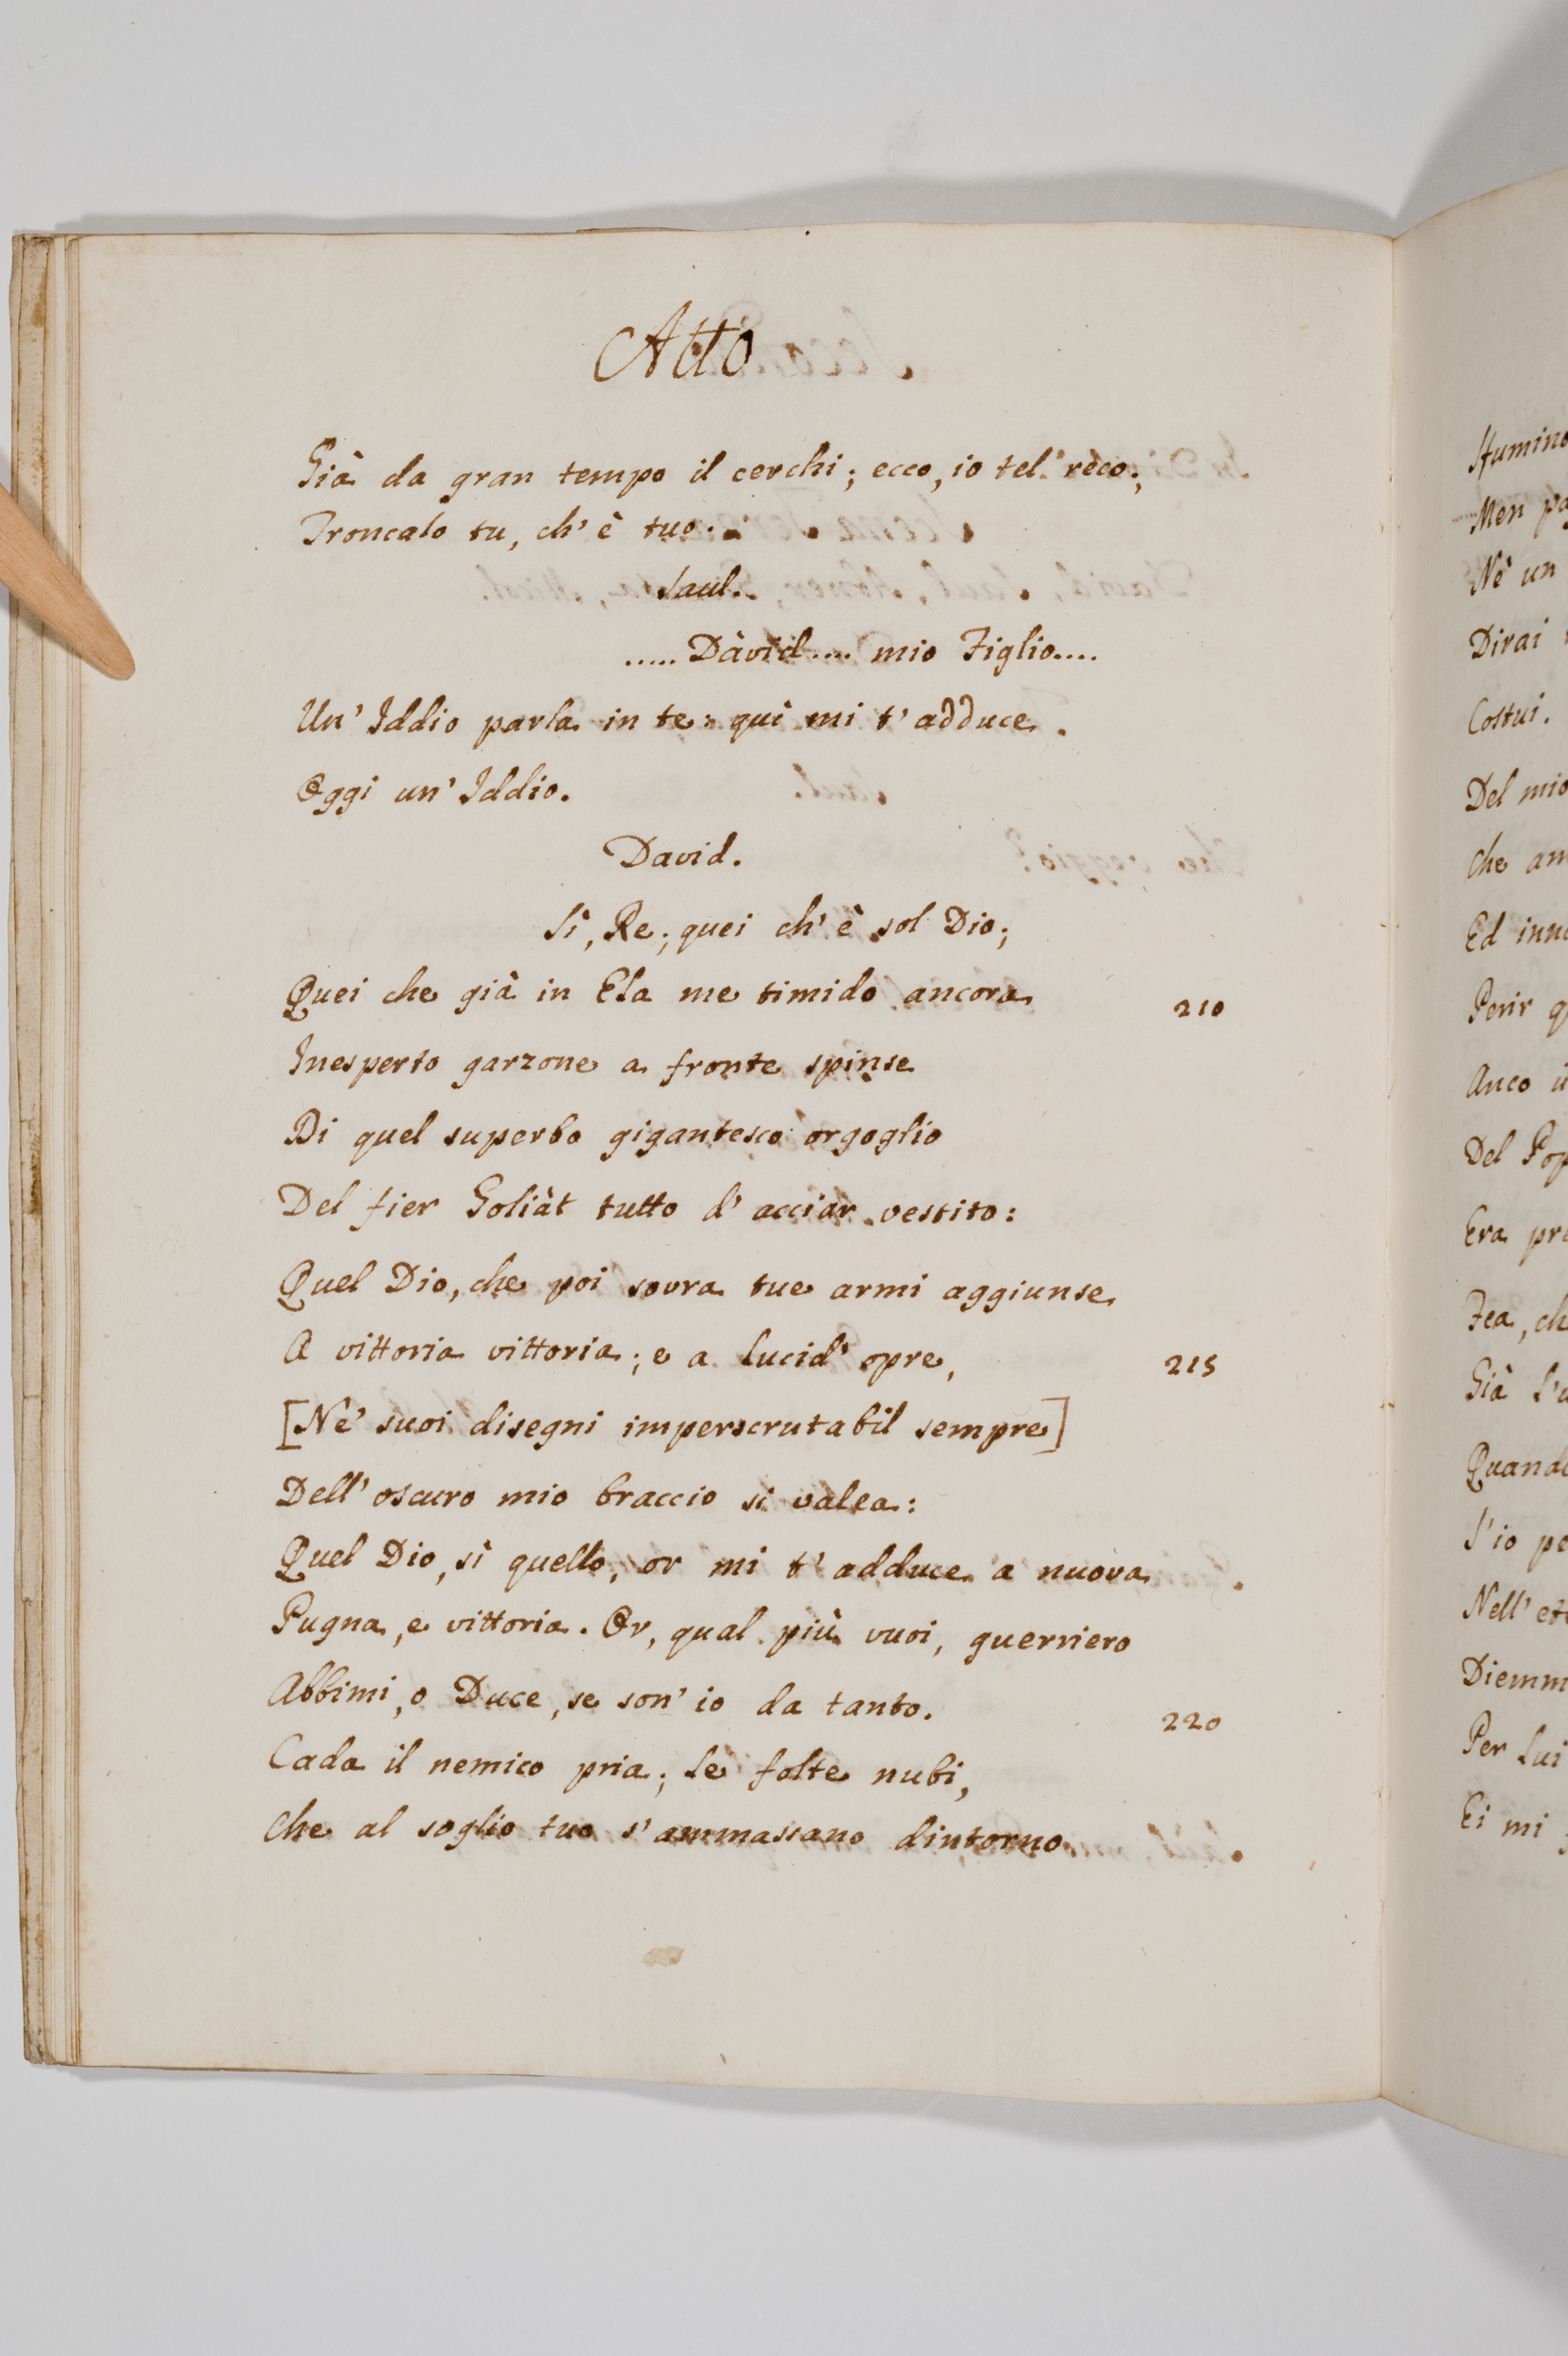 Atto
Già da gran tempo il cerchi; ecco, io tel reco;
Troncalo tu, ch'è tuo.
Saul.
..... Dàvid.... mio Figlio....
Un' Iddio parla in te: quì mi t'adduce
Oggi un' Iddio.
David.
Sì, Re; quei ch'è sol Dio;
Quei che già in Ela me timido ancora
210
Inesperto garzone a fronte spinse
Di quel superbo gigantesco orgoglio
Del fier Goliàt tutto d'acciar vestito:
Quel Dio, che poi sovra tue armi aggiunse
A vittoria vittoria; e a lucid' opre,
215
[Nè' suoi disegni imperscrutabil sempre]
Dell' oscuro mio braccio si valea:
Quel Dio, sì quello, or mi t'adduce a nuova
Pugna, e vittoria. Or, qual più vuoi, guerriero
Abbimi, o Duce, se son' io da tanto.
220
Cada il nemico pria; le folte nubi,
Che al soglio tuo s'ammassano dintorno
Men
Nè un
Dirai
Costui.
Del mio
Che
Ed
Perir
Anco
Del
Era
Fea,
Già
S'io
Nell'
Per lui
Ei mi